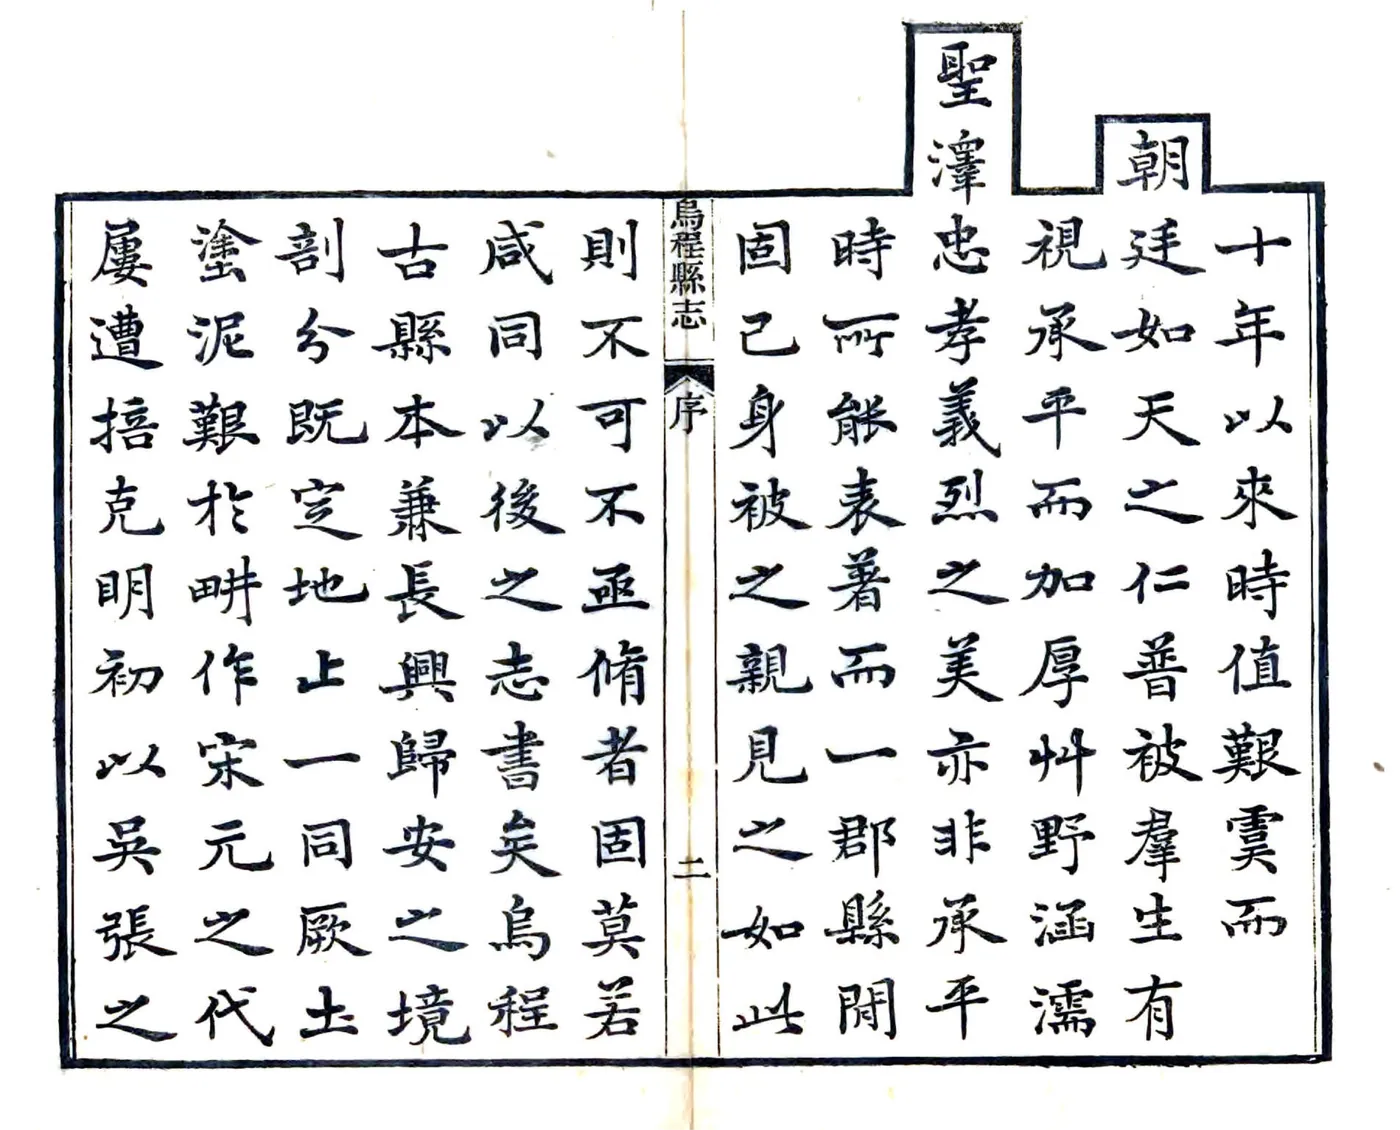 十年以來時值艱虞而
朝廷如天之仁普被羣生有
視承平而加厚艸野涵濡
聖澤忠孝義烈之美亦非承平
時所能表著而一郡縣閒
固己身被之親見之如此
烏程縣志
序
二
則不可不亟脩者固莫若
咸同以後之志書矣烏程
古縣本兼長興歸安之境
剖分既定地止一同厥土
塗泥艱於畊作宋元之代
屢遭掊克明初以吳張之